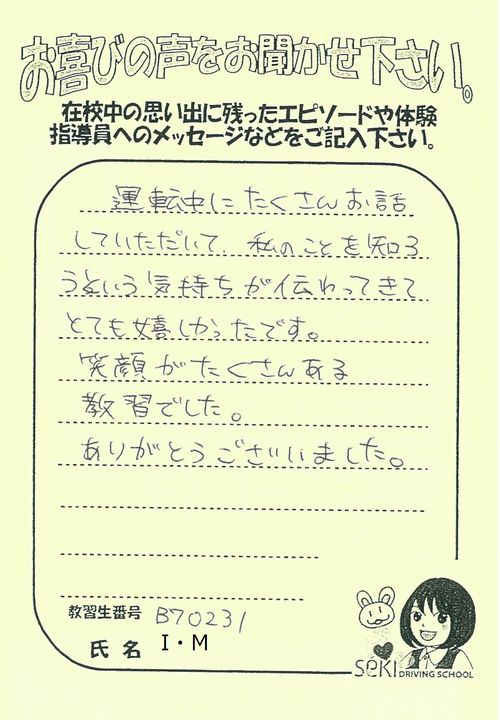 お喜びの声をお聞かせ下さい。
在校中の思い出に残ったエピソードや体験
指導員へのメッセージなどをご記入下さい。
運転中にたくさんお話
していただいて、私のことを知ろ
うという気持ちが伝わってきて
とても嬉しかったです。
笑顔がたくさんある
教習でした。
ありがとうございました。
教習生番号 B70231
氏名 I・M
SEKI DRIVING SCHOOL